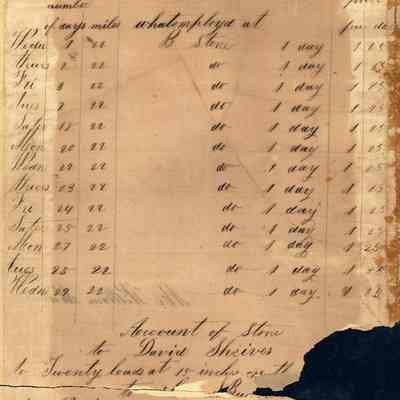 number
of days miles what employd at
Wedn 1 22 B Stone 1 day 1 25
thurs 2 22 do 1 day 1 25
Fri 22 do 1 day 1 25
Tues 7 22 do 1 day 1 25
Satr 18 22 do 1 day 1 25
Mon 20 22 do 1 day 1 25
Wedn 22 22 do 1 day 1 25
thurs 23 22 do 1 day 1 25
Fri 24 22 do 1 day 1 25
Satr 25 22 do 1 day 1 25
Mon 27 22 do 1 day 1 25
tues 28 22 do 1 day 1 25
Wedn 29 22 do 1 day 1 25
Account of Stone
to David Shrives
to Twenty loads at 15 inches